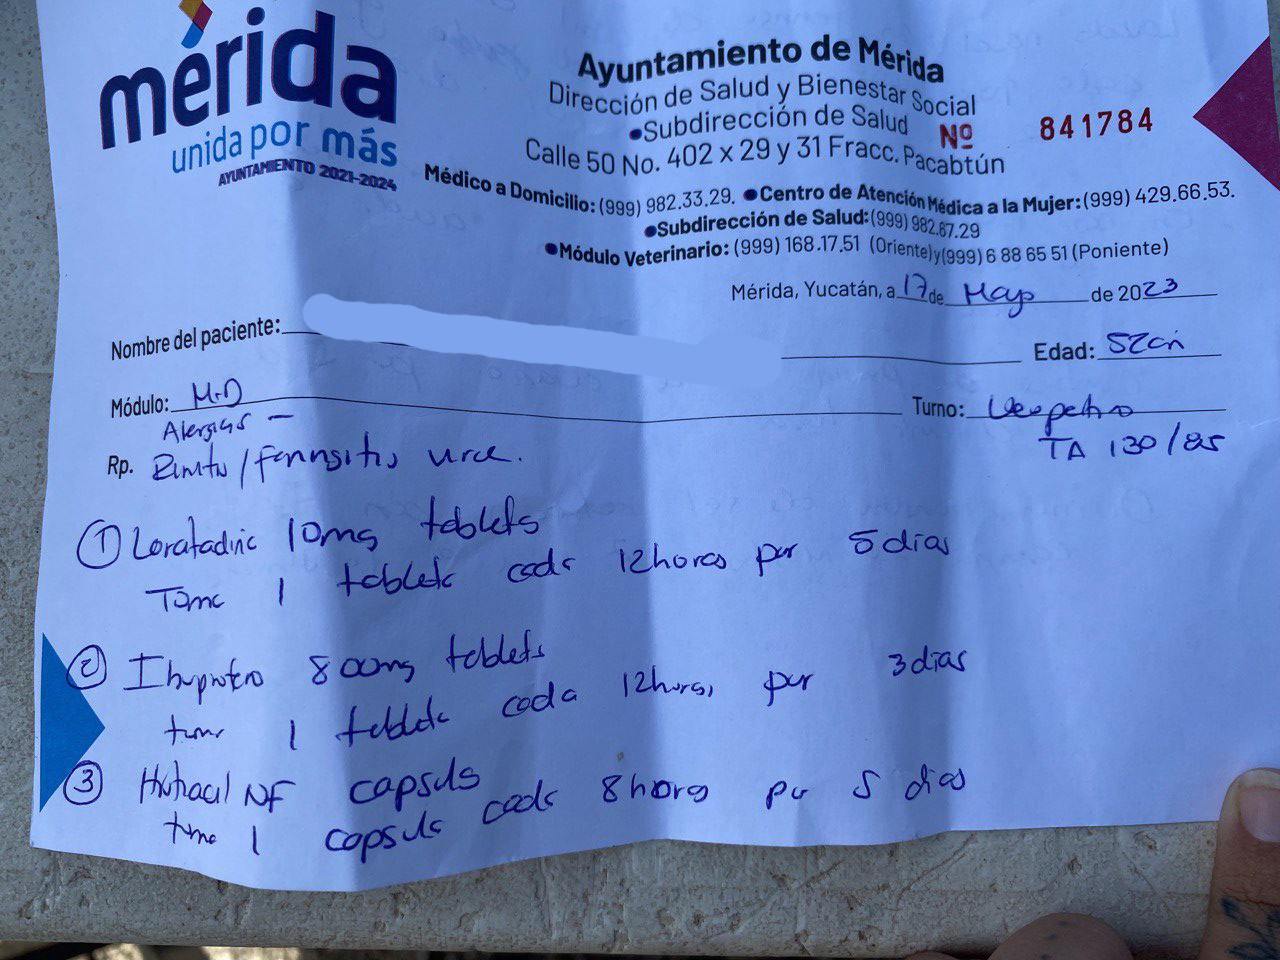 mérida
unida por más
AYUNTAMIENTO 2021-2024
Ayuntamiento de Mérida
Dirección de Salud y Bienestar Social
•Subdirección de Salud
Calle 50 No. 402 x 29 y 31 Fracc. Pacabtún
Nº 841784
Médico a Domicilio: (999) 982.33.29. •Centro de Atención Médica a la Mujer: (999) 429.66.53.
•Subdirección de Salud: (999) 982.67.29
•Módulo Veterinario: (999) 168.17.51 (Oriente) y (999) 6 88 65 51 (Poniente)
Mérida, Yucatán, a 17 de Mayo de 2023
Nombre del paciente:
Edad: 52
Módulo: MD
Turno:
Alergias —
TA 130/85
Rp.
① Loratadine 10mg tablets
Tome 1 tableta cada 12horas por 5 dias
② 800mg tablets
tome 1 tableta cada 12horas por 3 dias
③ NF capsuls
tome 1 capsula cada 8horas por 5 dias